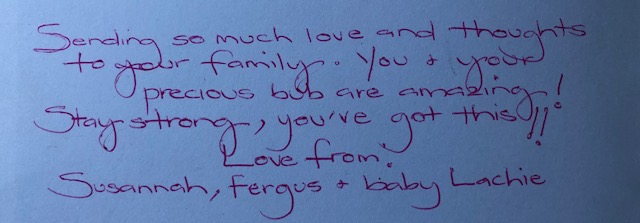 Sending so much love and thoughts
to your family. You & your
precious bub are amazing!
Stay strong, you've got this!!
Love from:
Susannah, Fergus & baby Lachie